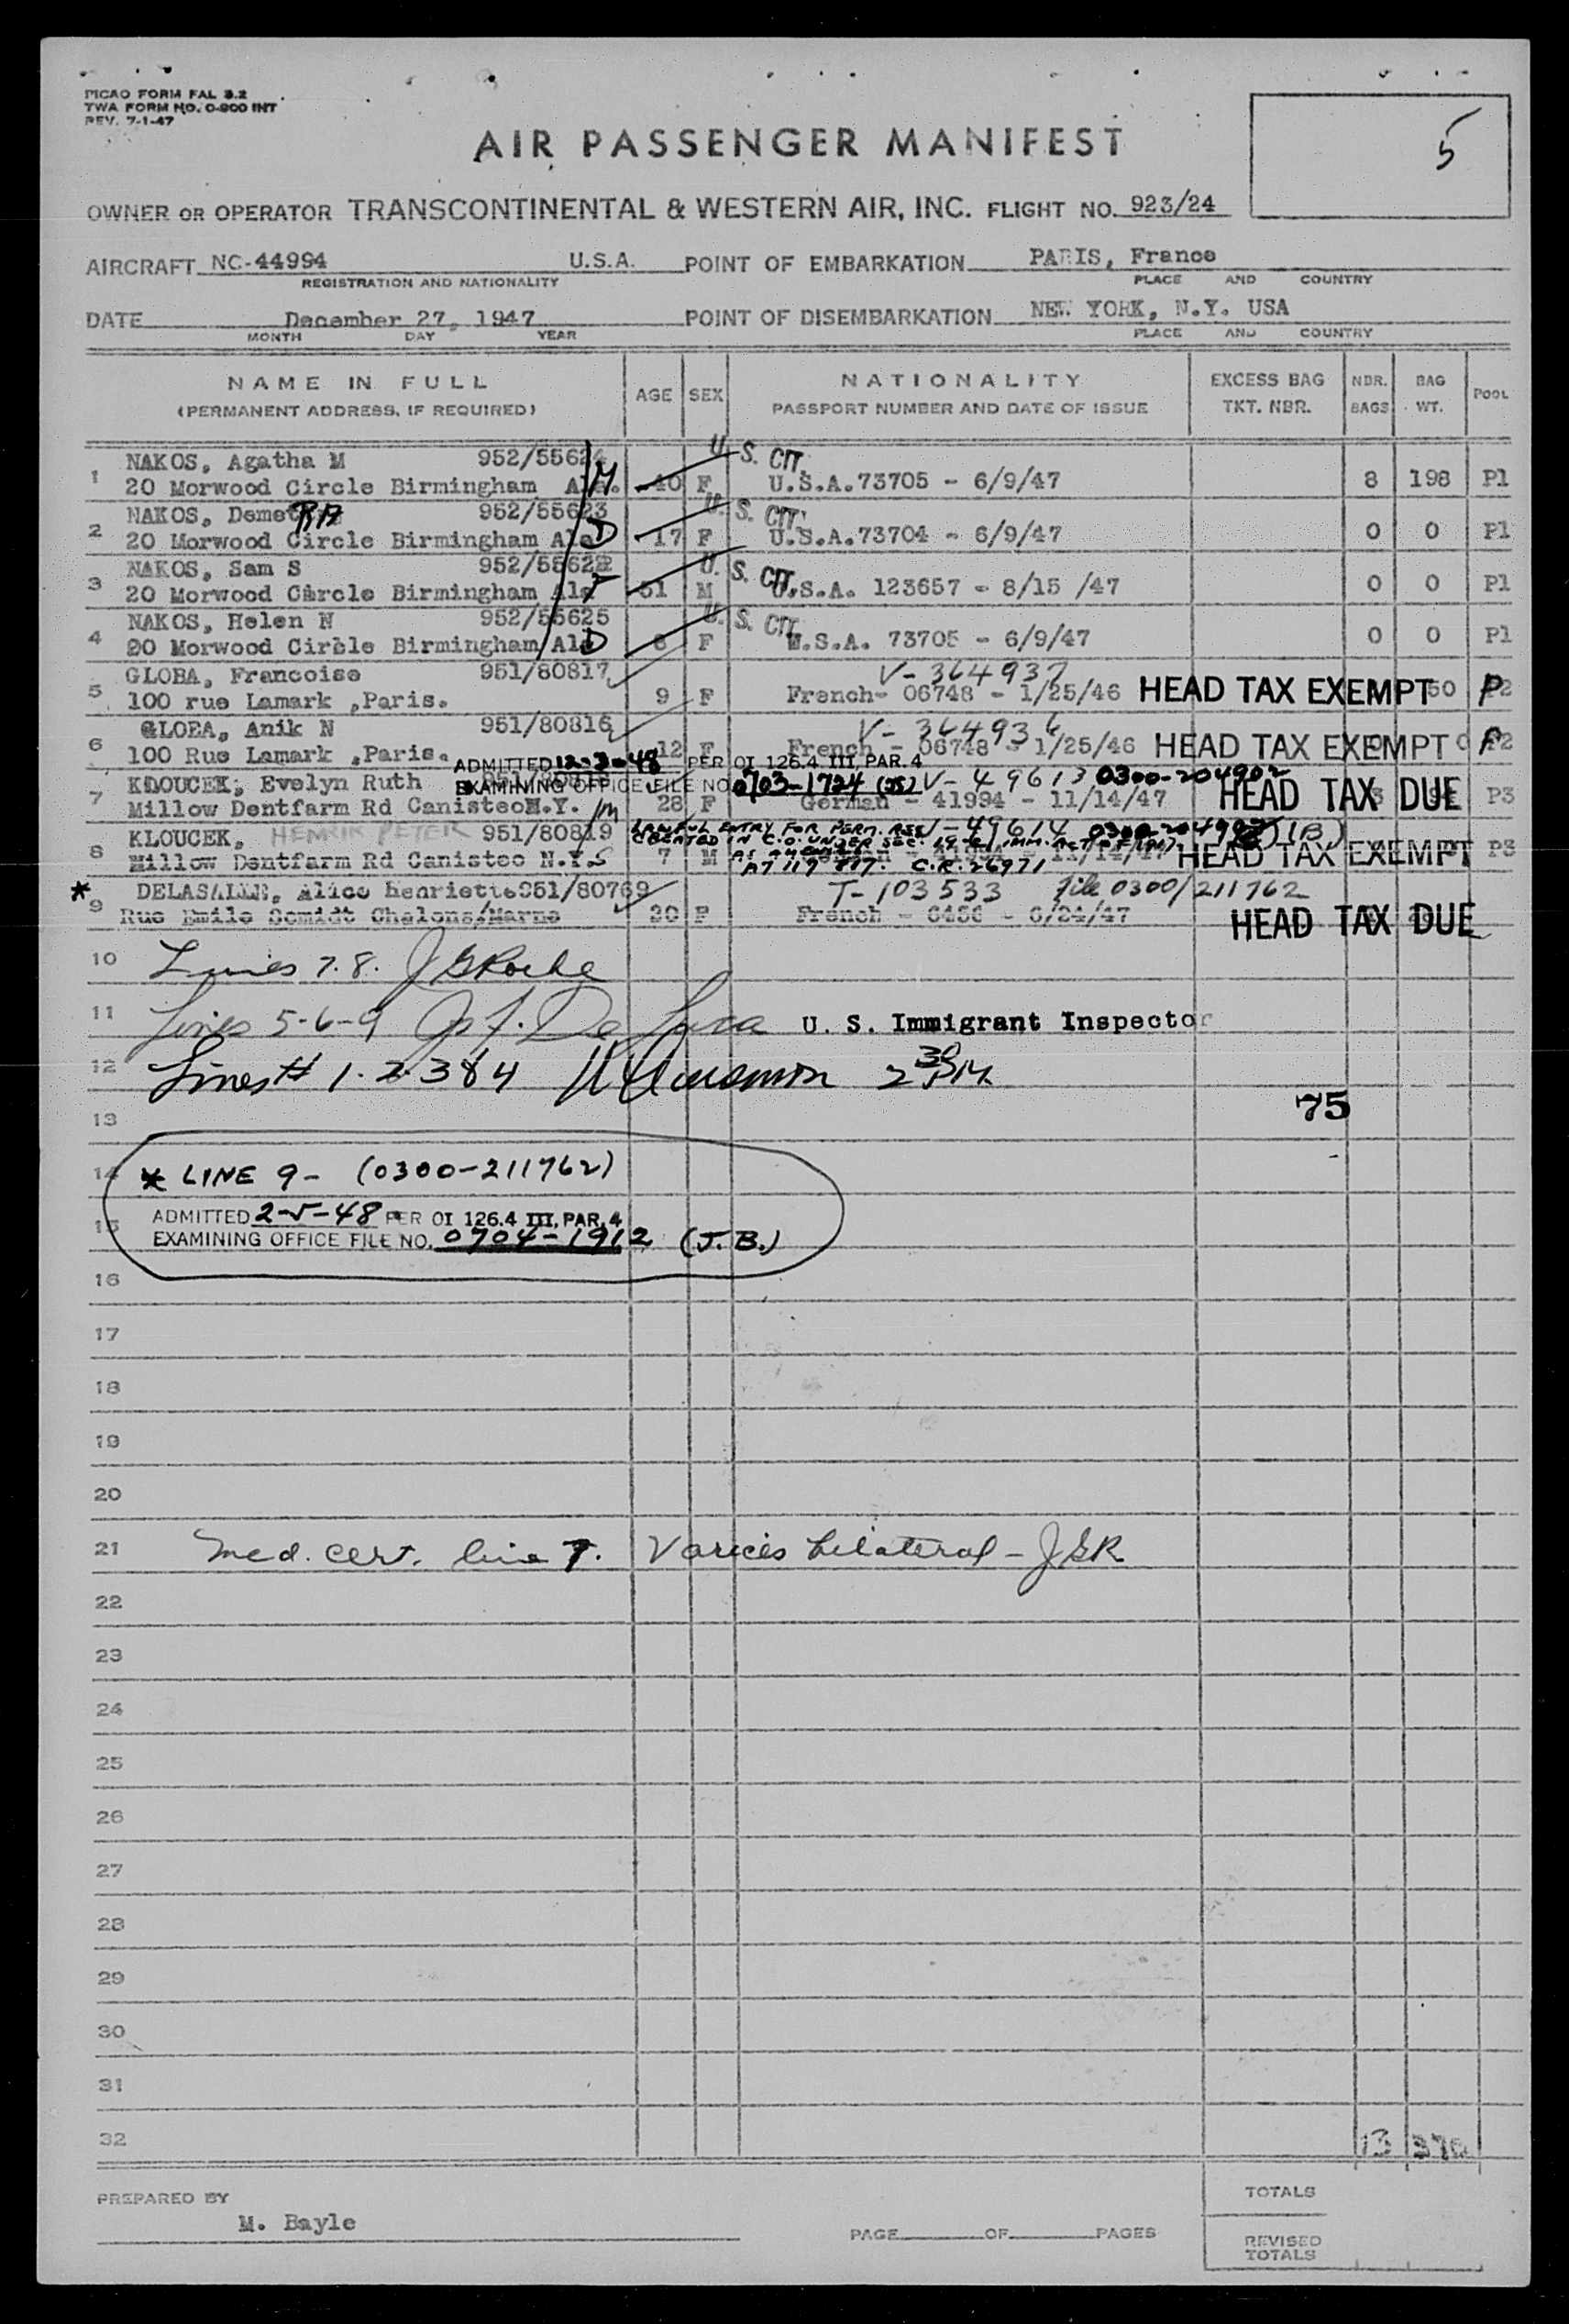 PICAO FORM FAL 3.2
TWA FORM NO. O-900 INT
REV. 7-1-47
5
AIR PASSENGER MANIFEST
OWNER OR OPERATOR TRANSCONTINENTAL & WESTERN AIR, INC. FLIGHT NO. 923/24
AIRCRAFT NC-44994 U.S.A. POINT OF EMBARKATION PARIS, France
REGISTRATION AND NATIONALITY PLACE AND COUNTRY
DATE December 27, 1947 POINT OF DISEMBARKATION NEW YORK, N.Y. USA
MONTH DAY YEAR PLACE AND COUNTRY
NAME IN FULL AGE SEX NATIONALITY EXCESS BAG NBR. BAG POOL
(PERMANENT ADDRESS, IF REQUIRED) PASSPORT NUMBER AND DATE OF ISSUE TKT. NBR. BAGS WT.
NAKOS, Agatha M 952/55624 U. S. CIT.
1 20 Morwood Circle Birmingham Ala. M 40 F U.S.A. 73705 - 6/9/47 8 198 P1
NAKOS, Demetra 952/55623 U. S. CIT.
2 20 Morwood Circle Birmingham Ala D 17 F U.S.A. 73704 - 6/9/47 0 0 P1
NAKOS, Sam S 952/55622 U. S. CIT.
3 20 Morwood Circle Birmingham Ala F 51 M U.S.A. 123657 - 8/15 /47 0 0 P1
NAKOS, Helen N 952/55625 U. S. CIT.
4 20 Morwood Cirble Birmingham Ala D 8 F U.S.A. 73705 - 6/9/47 0 0 P1
GLOBA, Francoise 951/80817 V-364937
5 100 rue Lamark ,Paris. 9 F French- 06748 - 1/25/46 HEAD TAX EXEMPT 50 P2
GLOBA, Anik N 951/80816 V-364936
6 100 Rue Lamark ,Paris. 12 F French - 06748 - 1/25/46 HEAD TAX EXEMPT 0 P2
ADMITTED 12-3-48 PER OI 126.4 III, PAR. 4
KLOUCEK, Evelyn Ruth EXAMINING OFFICE FILE NO. 0703-1724 (JS) V-49613 0300-204902
7 Millow Dentfarm Rd Canisteo N.Y. M 28 F German - 41994 - 11/14/47 HEAD TAX DUE P3
KLOUCEK, HENRIK PETER 951/80819 LAWFUL ENTRY FOR PERM. RES. V-49614 (B)
CREATED IN C.O. UNDER SEC.
8 Millow Dentfarm Rd Canisteo N.Y. S 7 M AS AMENDED 11/14/47 HEAD TAX EXEMPT P3
A7 119 817. C.R. 26971
* DELASALLE, Alice Henriette 951/80769 T-103533 File 0300/211762
9 Rue Emile Scmidt Chalons/Marne 20 F French - 6486 - 6/24/47 HEAD TAX DUE
10 Lines 7.8. JGRoche
11 Lines 5-6-9 Jos. F. De Luca U. S. Immigrant Inspector
12 Lines # 1.2.3&4
13 75
14 * LINE 9- (0300-211762)
15 ADMITTED 2-5-48 PER OI 126.4 III, PAR. 4
EXAMINING OFFICE FILE NO. 0704-1912 (J.B.)
16
17
18
19
20
21 Med. cert. line 7. Varices bilateral - JGR
22
23
24
25
26
27
28
29
30
31
32 13 370
PREPARED BY TOTALS
M. Bayle
PAGE OF PAGES REVISED
TOTALS